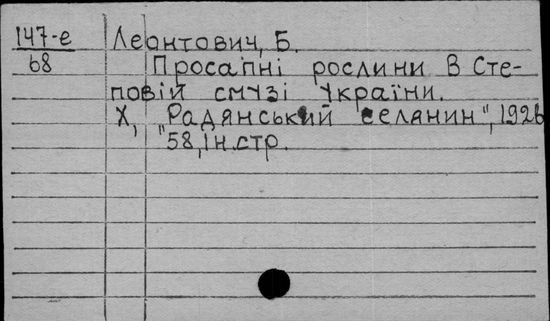 147-е
68
Леонтович, Б.
Просапні рослини в Сте-
повій смузі України.
Х, "Радянський селянин", 1926
"58, Ін.стр.